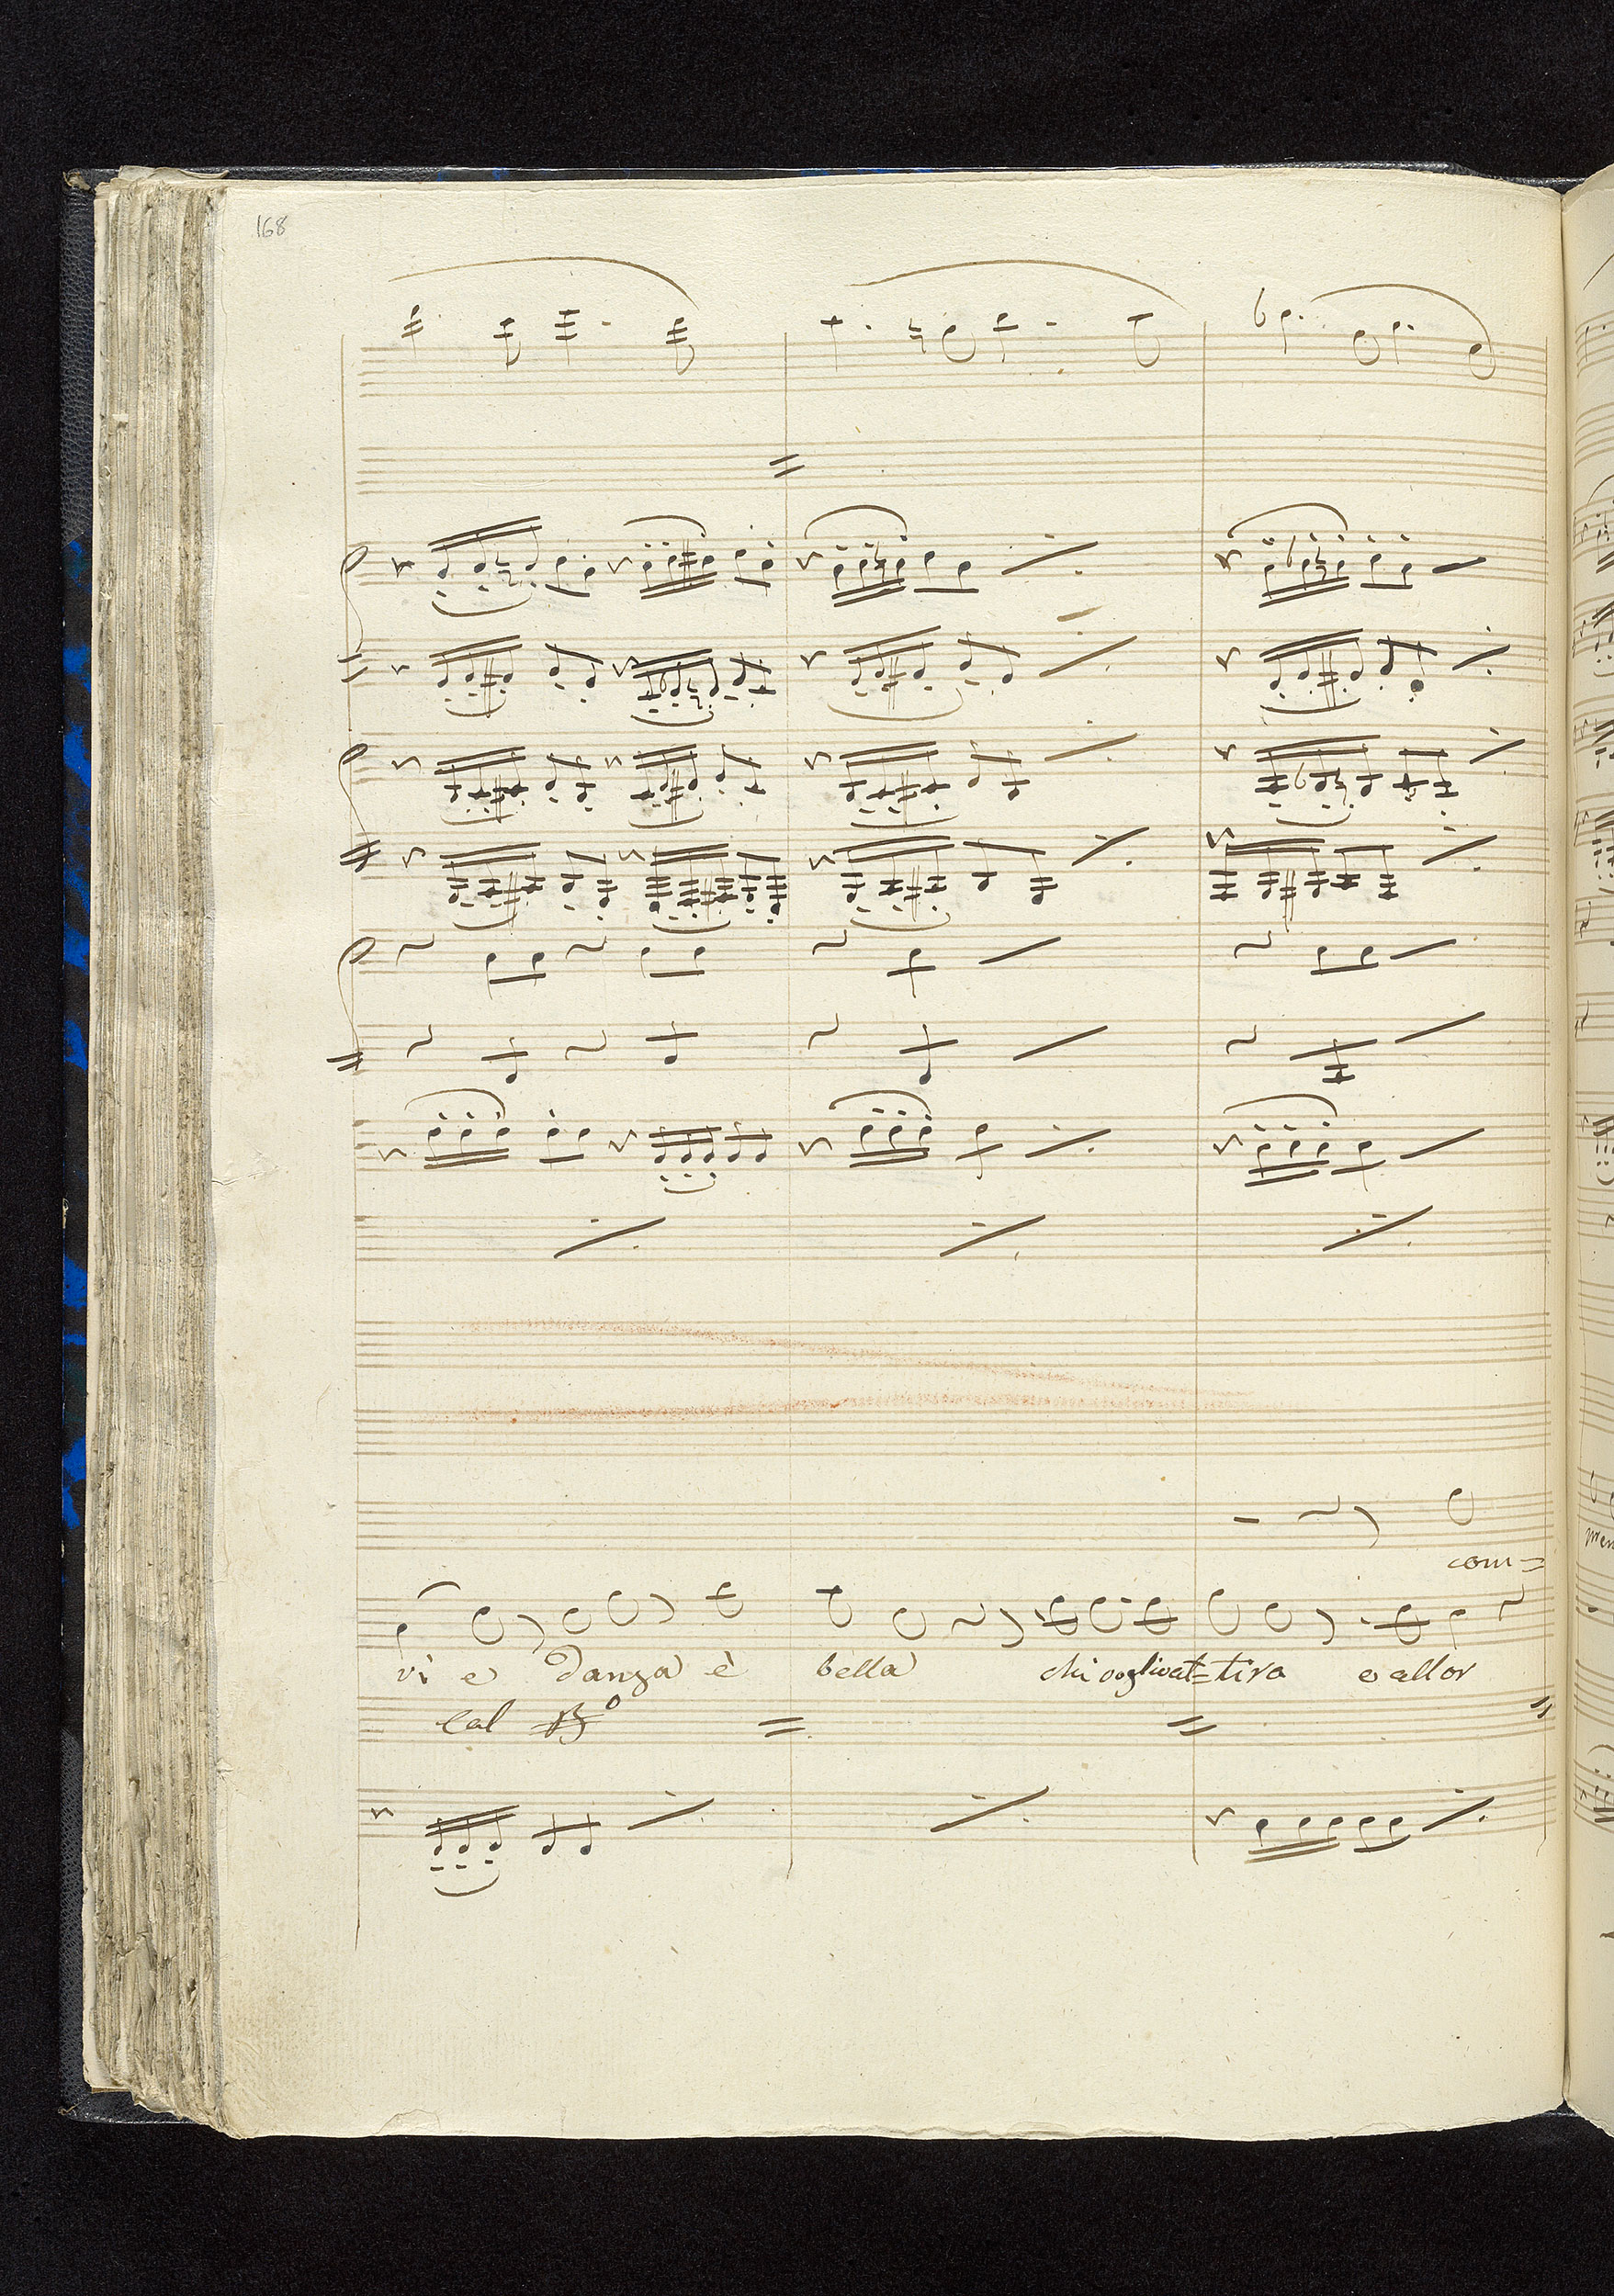 168
com=
vi e danza è bella chi voglivat=tira e allor
Col Bº